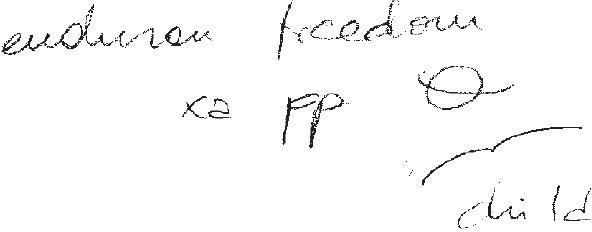 enduron freedom
xa pp
child